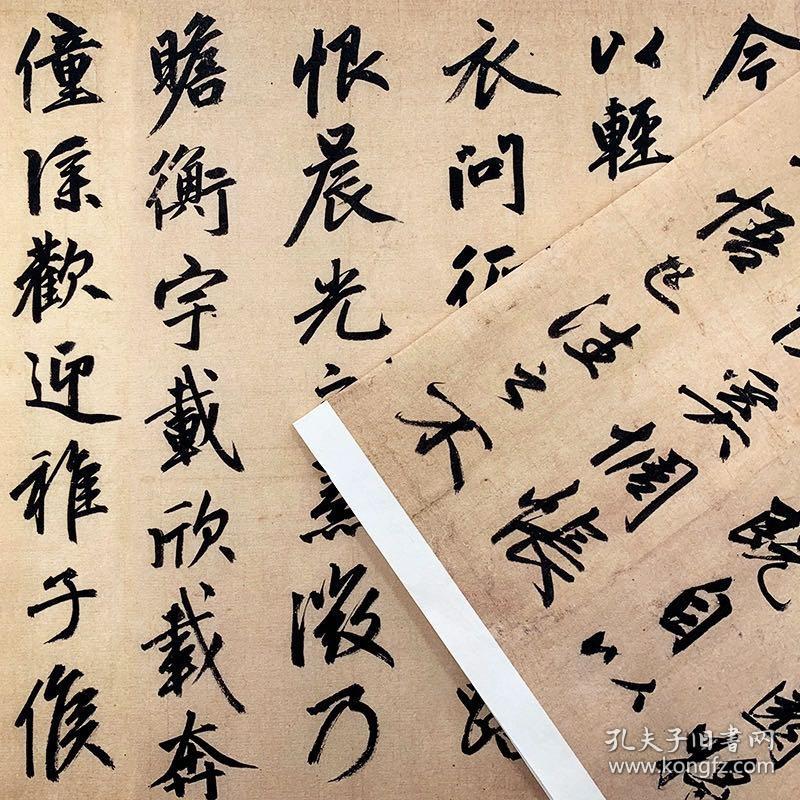 今
以輕
衣問征
恨晨光熹微乃
瞻衡宇載欣載奔
僮僕歡迎稚子候
園
既自以
奚惆悵
悟已往之不
孔夫子旧書网
www.kongfz.com